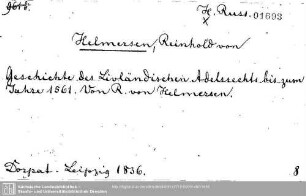 H. Russ. 01603
Helmersen, Reinhold von
Geschichte des Livländischen Adelsrechts bis zum
Jahre 1561. Von R. von Helmersen.
Dorpat. Leipzig 1836. 8
Sächsische Landesbibliothek -
Staats- und Universitätsbibliothek Dresden